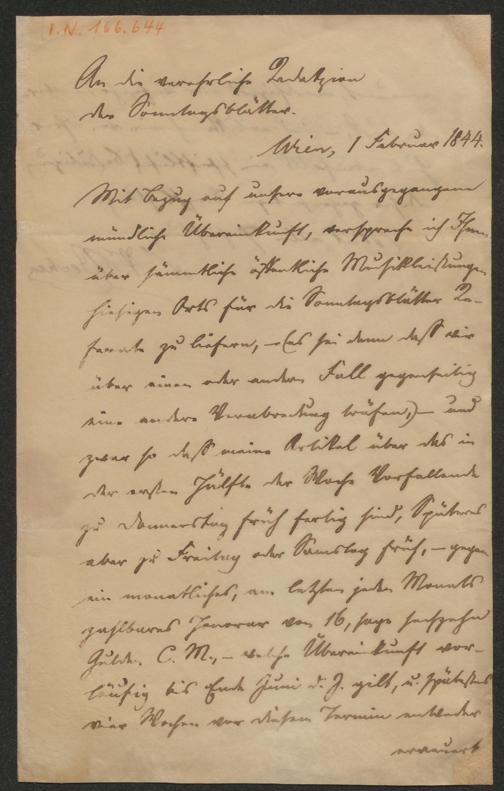 I.N. 166.644
An die verehrliche Redakzion
der Sonntagsblätter.
Wien, 1 Februar 1844.
Mit Bezug auf unsere vorausgegangene
mündliche Übereinkunft, verspreche ich Ihnen
über sämmtliche öffentliche Musikleistungen
hiesigen Orts für die Sonntagsblätter Re-
ferate zu liefern, – (es sei denn daß wir
über einen oder andern Fall gegenseitig
eine andere Verabredung träfen,) – und
zwar so daß meine Artikel über das in
der ersten Hälfte der Woche Vorfallende
zu Donnerstag früh fertig sind, Späteres
aber zu Freitag oder Samstag früh, – gegen
ein monatliches, am letzten jeden Monats
zahlbares Honorar von 16, sage sechzehn
Gulden C. M., – welche Übereinkunft vor-
läufig bis Ende Juni d. J. gilt, u. spätestens
vier Wochen vor diesem Termin entweder
erneuert